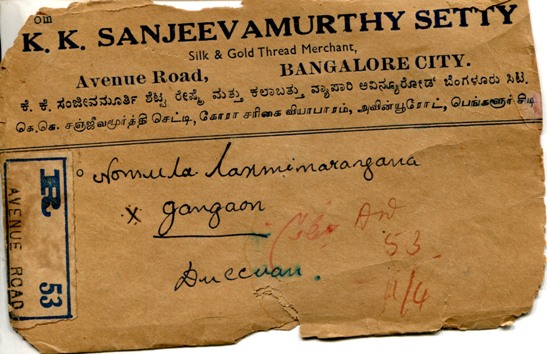 om
K. K. SANJEEVAMURTHY SETTY
Silk & Gold Thread Merchant,
Avenue Road, BANGALORE CITY.
ಕೆ. ಕೆ. ಸಂಜೀವಮೂರ್ತಿ ಶೆಟ್ಟಿ ರೇಷ್ಮೆ ಮತ್ತು ಕಲಾಬತ್ತು ವ್ಯಾಪಾರಿ ಅವಿನ್ಯೂರೋಡ್ ಬೆಂಗಳೂರು ಸಿಟಿ.
கெ.கெ. சஞ்ஜீவமூர்த்தி செட்டி, கோரா சரிகை வியாபாரம், அவின்யூரோட், பெங்களூர் சிடி
Nomula Laxminarayana
x Jangaon
Duccuan.
R
53
AVENUE ROAD
53
11/4